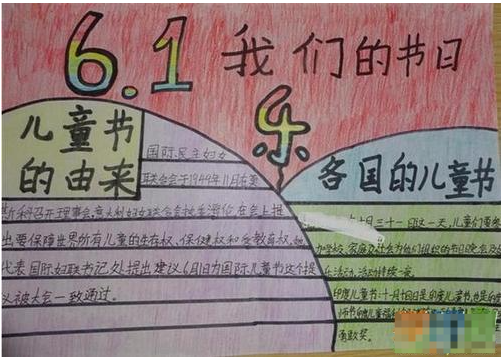 6.1 我们的节日
乐
儿童节
的由来
国际民主妇女
联合会于1949年11月在莫
斯科召开理事会,意大利妇女联合会
在会上提
出要保障世界所有儿童的生存权、保健权和受教育权,
代表国际妇联书记处提出建议6月1日为国际儿童节这个提
议被大会一致通过。
各国的儿童节
十月三十一日这一天,儿童们
学校、家庭及社会为他们组织的节日晚会及
乐活动,活动持续一夜。
印度儿童节:十月十四日是印度儿童节,也是
师节
勇敢奖。